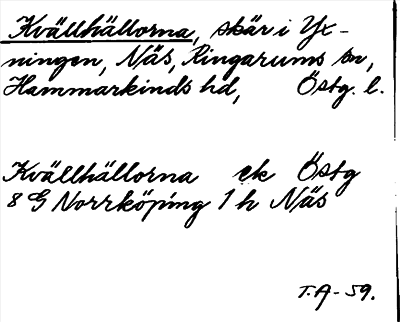 Kvällhällorna, skär i Yx-
ningen, Näs, Ringarums sn,
Hammarkinds hd, Östg. l.
Kvällhällorna ek Östg
8 G Norrköping 1 h Näs
T.A-59.